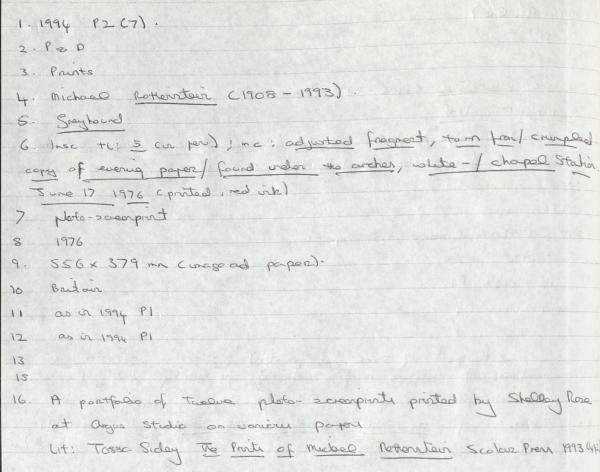 1. 1994 P2 (7).
2. P & D
3. Prints
4. Michael Rothenstein (1908 - 1993).
5. Greyhound
6. Insc tl: 5 (in pen); nc: adjusted fragment, torn from / crumpled
copy of evening paper / found under the arches, white - / chapel Station,
June 17 1976 (printed, red ink)
7 Photo-screenprint
8 1976
9. 556 x 379 mm (image and paper).
10 Britain
11 as in 1994 P1
12 as in 1994 P1
13
15
16. A portfolio of twelve photo-screenprints printed by Shelley Rose
at Argus Studio on various papers
Lit: Tessa Sidey The Prints of Michael Rothenstein Scolar Press 1993